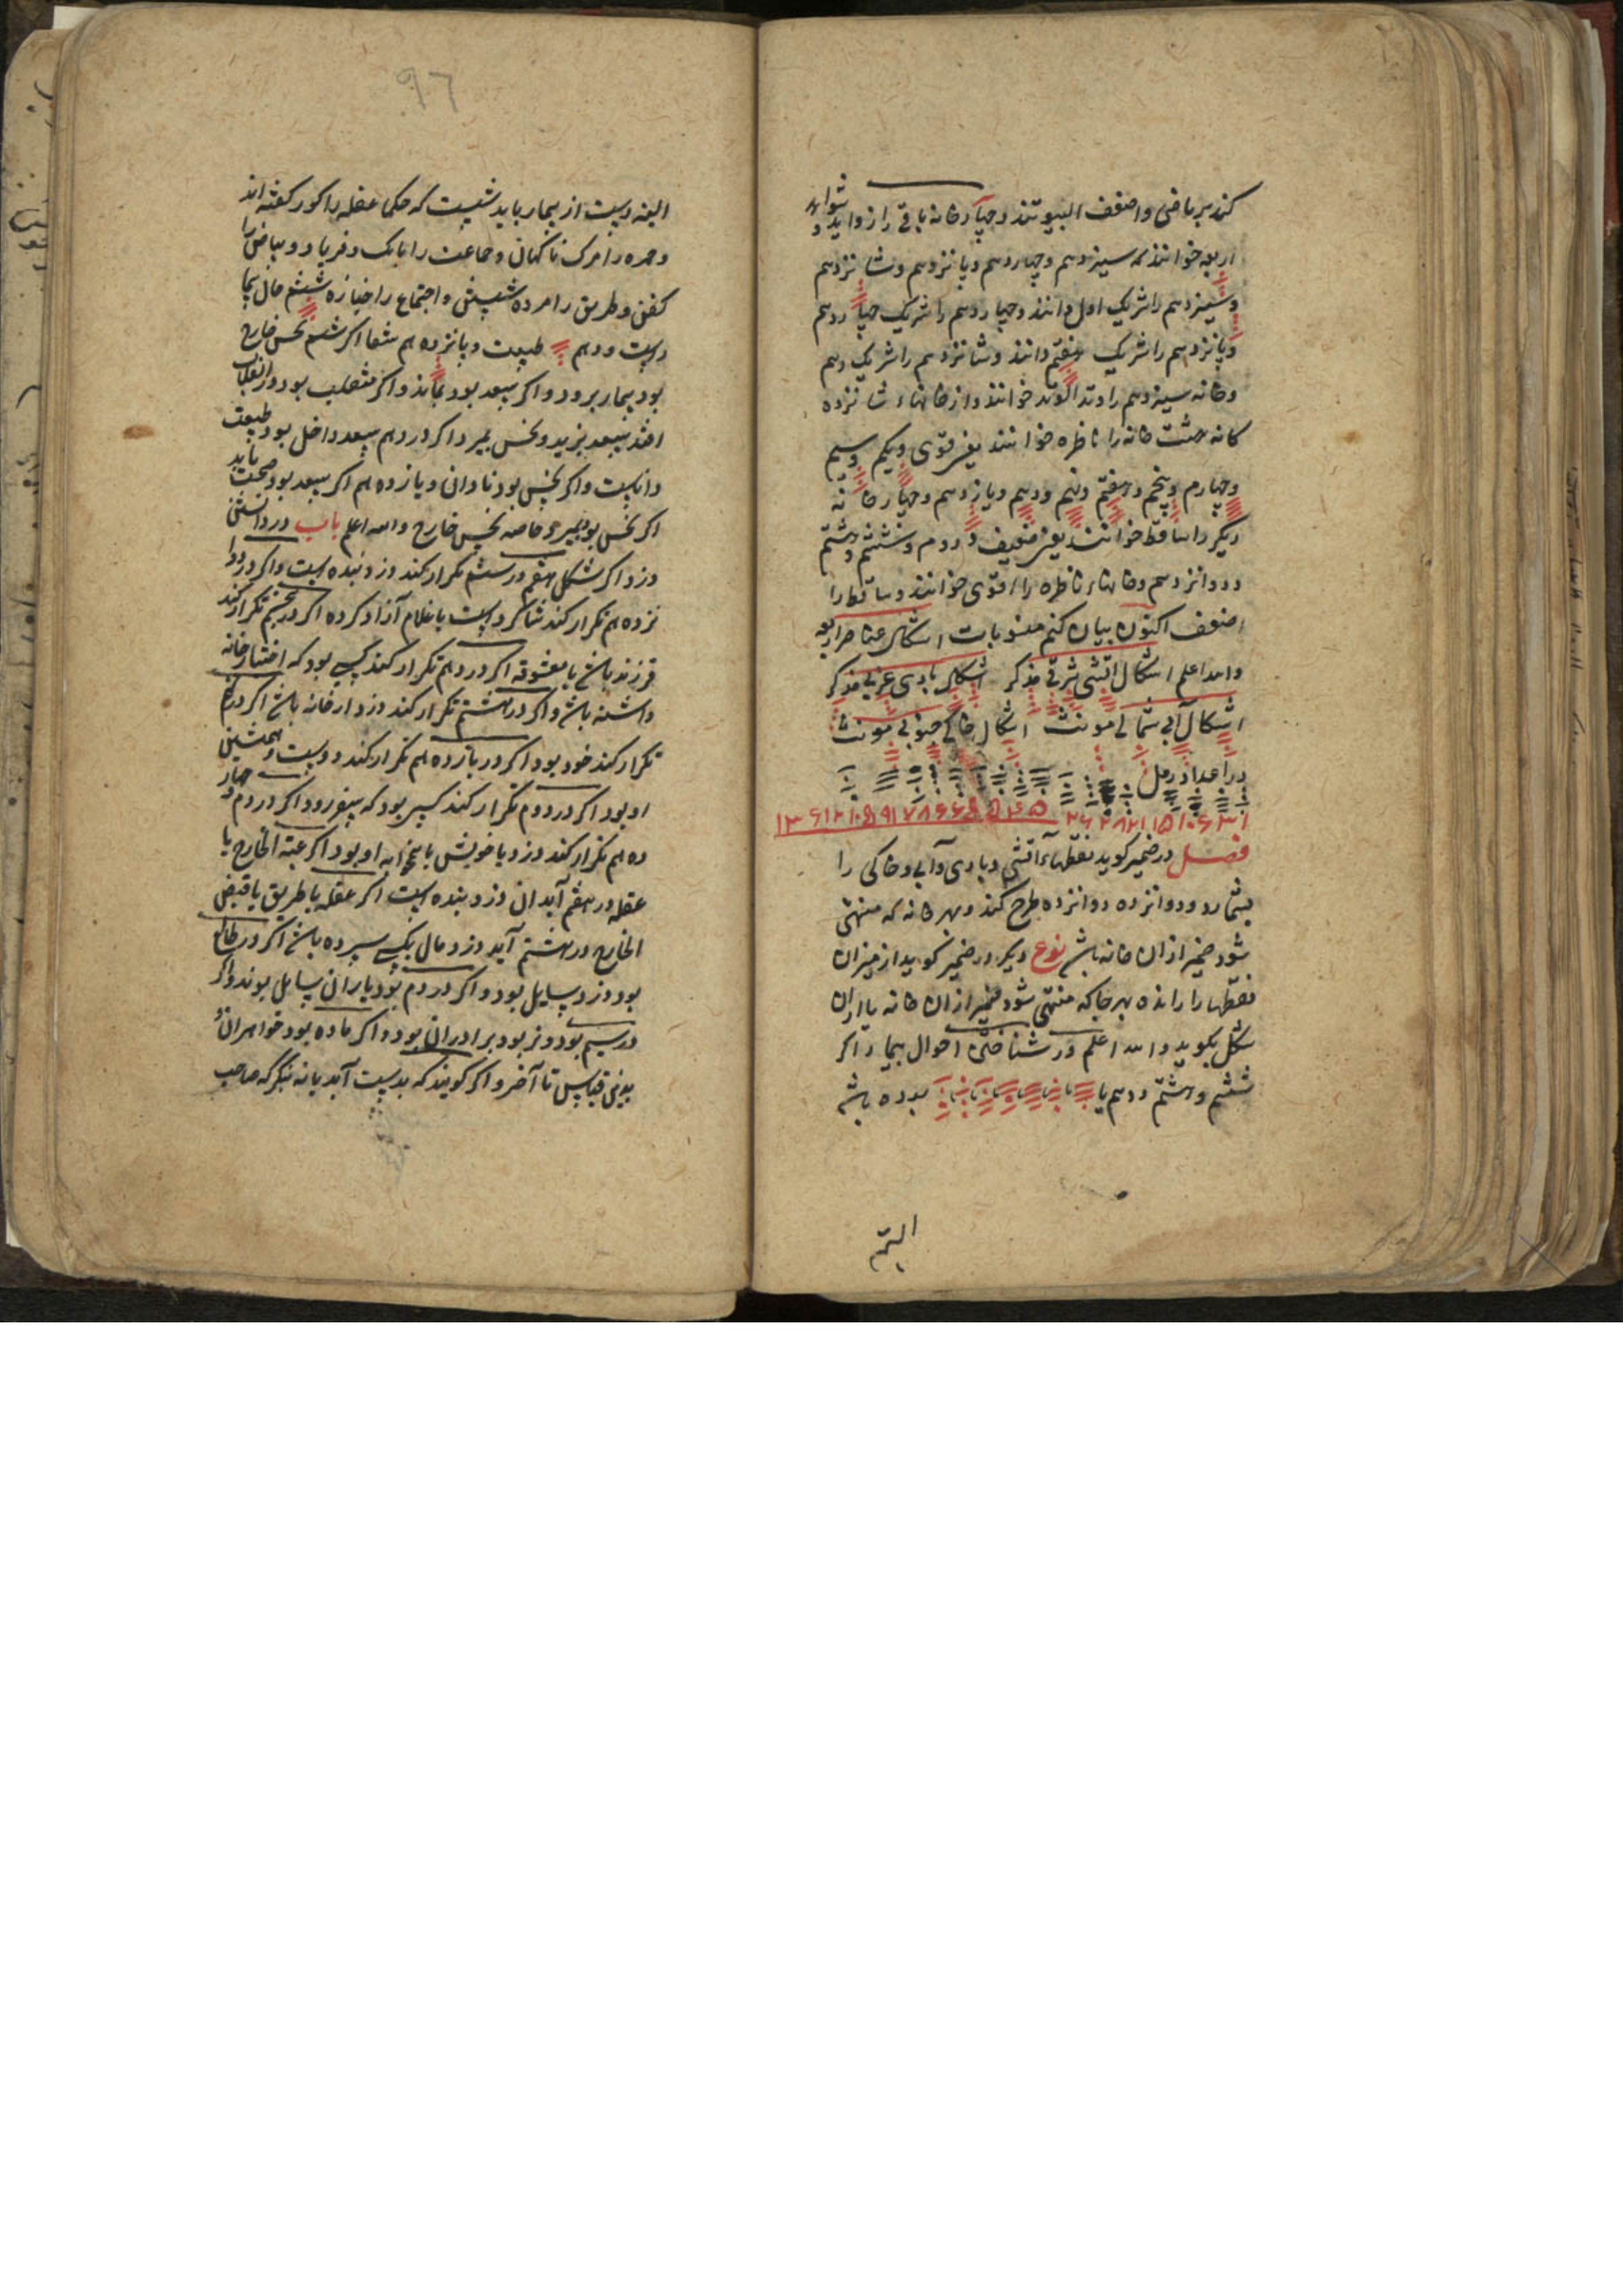 کند بر ماضی و اضعف البیوتند و چهار خانه باقی را زواید و شواهد
اربعه خوانند که سیزدهم و چهاردهم و پانزدهم و شانزدهم
و سیزدهم را شریک اول دانند و چهاردهم را شریک چهاردهم
و پانزدهم را شریک هفتم دانند و شانزدهم را شریک دهم
و خانه سیزدهم را وتد الوتد خوانند و از خانهاء شانزده
کانه هشت خانه را ناظره خوانند یعنی قوی و یکم و سیم
و چهارم و پنجم و هفتم و نهم و دهم و یازدهم و چهار خانه
دیکر را ساقط خوانند یعنی ضعیف دوم و ششم و هشتم
و دوازدهم و خانهاء ناظره را قوی خوانند و ساقط را
اضعف اکنون بیان کنم منسوبات اشکال عناصر اربعه
والله اعلم اشکال اتشی شرقی مذکر اشکال بادی غربی مذکر
اشکال آبی شمالی مونث اشکال خاکی جنوبی مونث
در اعداد رمل
فصل در ضمیر کوید نقطهاء آتشی و بادی و آبی و خاکی را
بشمارد و دوانزده دوانزده طرح کند و بهر خانه که منتهی
شود ضمیر از ان خانه باشد نوع دیکر در ضمیر کوید از میزان
نقطها را رانده بهر جا که منتهی شود ضمیر از ان خانه یا از ان
شکل بکوید والله اعلم در شناختن احوال بیمار اکر
ششم و هشتم و دهم یا بوده باشد
البته
٩٦
البته دست از بیمار باید شست که حکما عقله را کور کفته اند
و حمره را مرک ناکهان و جماعت را بانک و فریاد و بیاض را
کفن و طریق را مرده شستن و اجتماع را جنازه ششم حال بیمار
است و دهم طبیب و پانزدهم شفا اکر ششم نحس خارج
بود بیمار برود و اکر سعد بود بماند و اکر منقلب بود در انقلاب
افتد بسعد بزید و نحس بمیرد اکر در دهم سعد داخل بود طبیب
داناست و اکر نحس بود نادان و پازدهم اکر سعد بود صحت یابد
اکر نحس بود بمیرد خاصه نحس خارج والله اعلم باب در دانستن
دزد اکر شکل هفتم در ششم تکرار کند دزد بنده است و اکر در دوا
نزدهم تکرار کند شاکرد است یا غلام آزاد کرده اکر در پنجم تکرار کند
فرزند باشد یا معشوقه اکر در دهم تکرار کند کسی بود که اختیار خانه
داشته باشد و اکر در هشتم تکرار کند دزد از خانه باشد اکر در
تکرار کند خود بود اکر در یازدهم تکرار کند دوست و همنشین
او بود اکر در دوم تکرار کند کسی بود که بسفر رود اکر در دوم و چهار
دهم تکرار کند دزد یا خویش یا همخوابه او بود اکر عتبة الخارج یا
عقله در هفتم آید ان دزد بنده است اکر عقله یا طریق یا قبض
الخارج در هشتم آید دزد مال بکسی سپرده باشد اکر در طالع
بود دزد سایل بود و اکر در دوم بود یاران سایل بوند و اکر
در سیم بود و نر بود برادران بود و اکر ماده بود خواهران و
بدین قیاس تا آخر و اکر کویند که بدست آید یا نه بنکر که صاحب